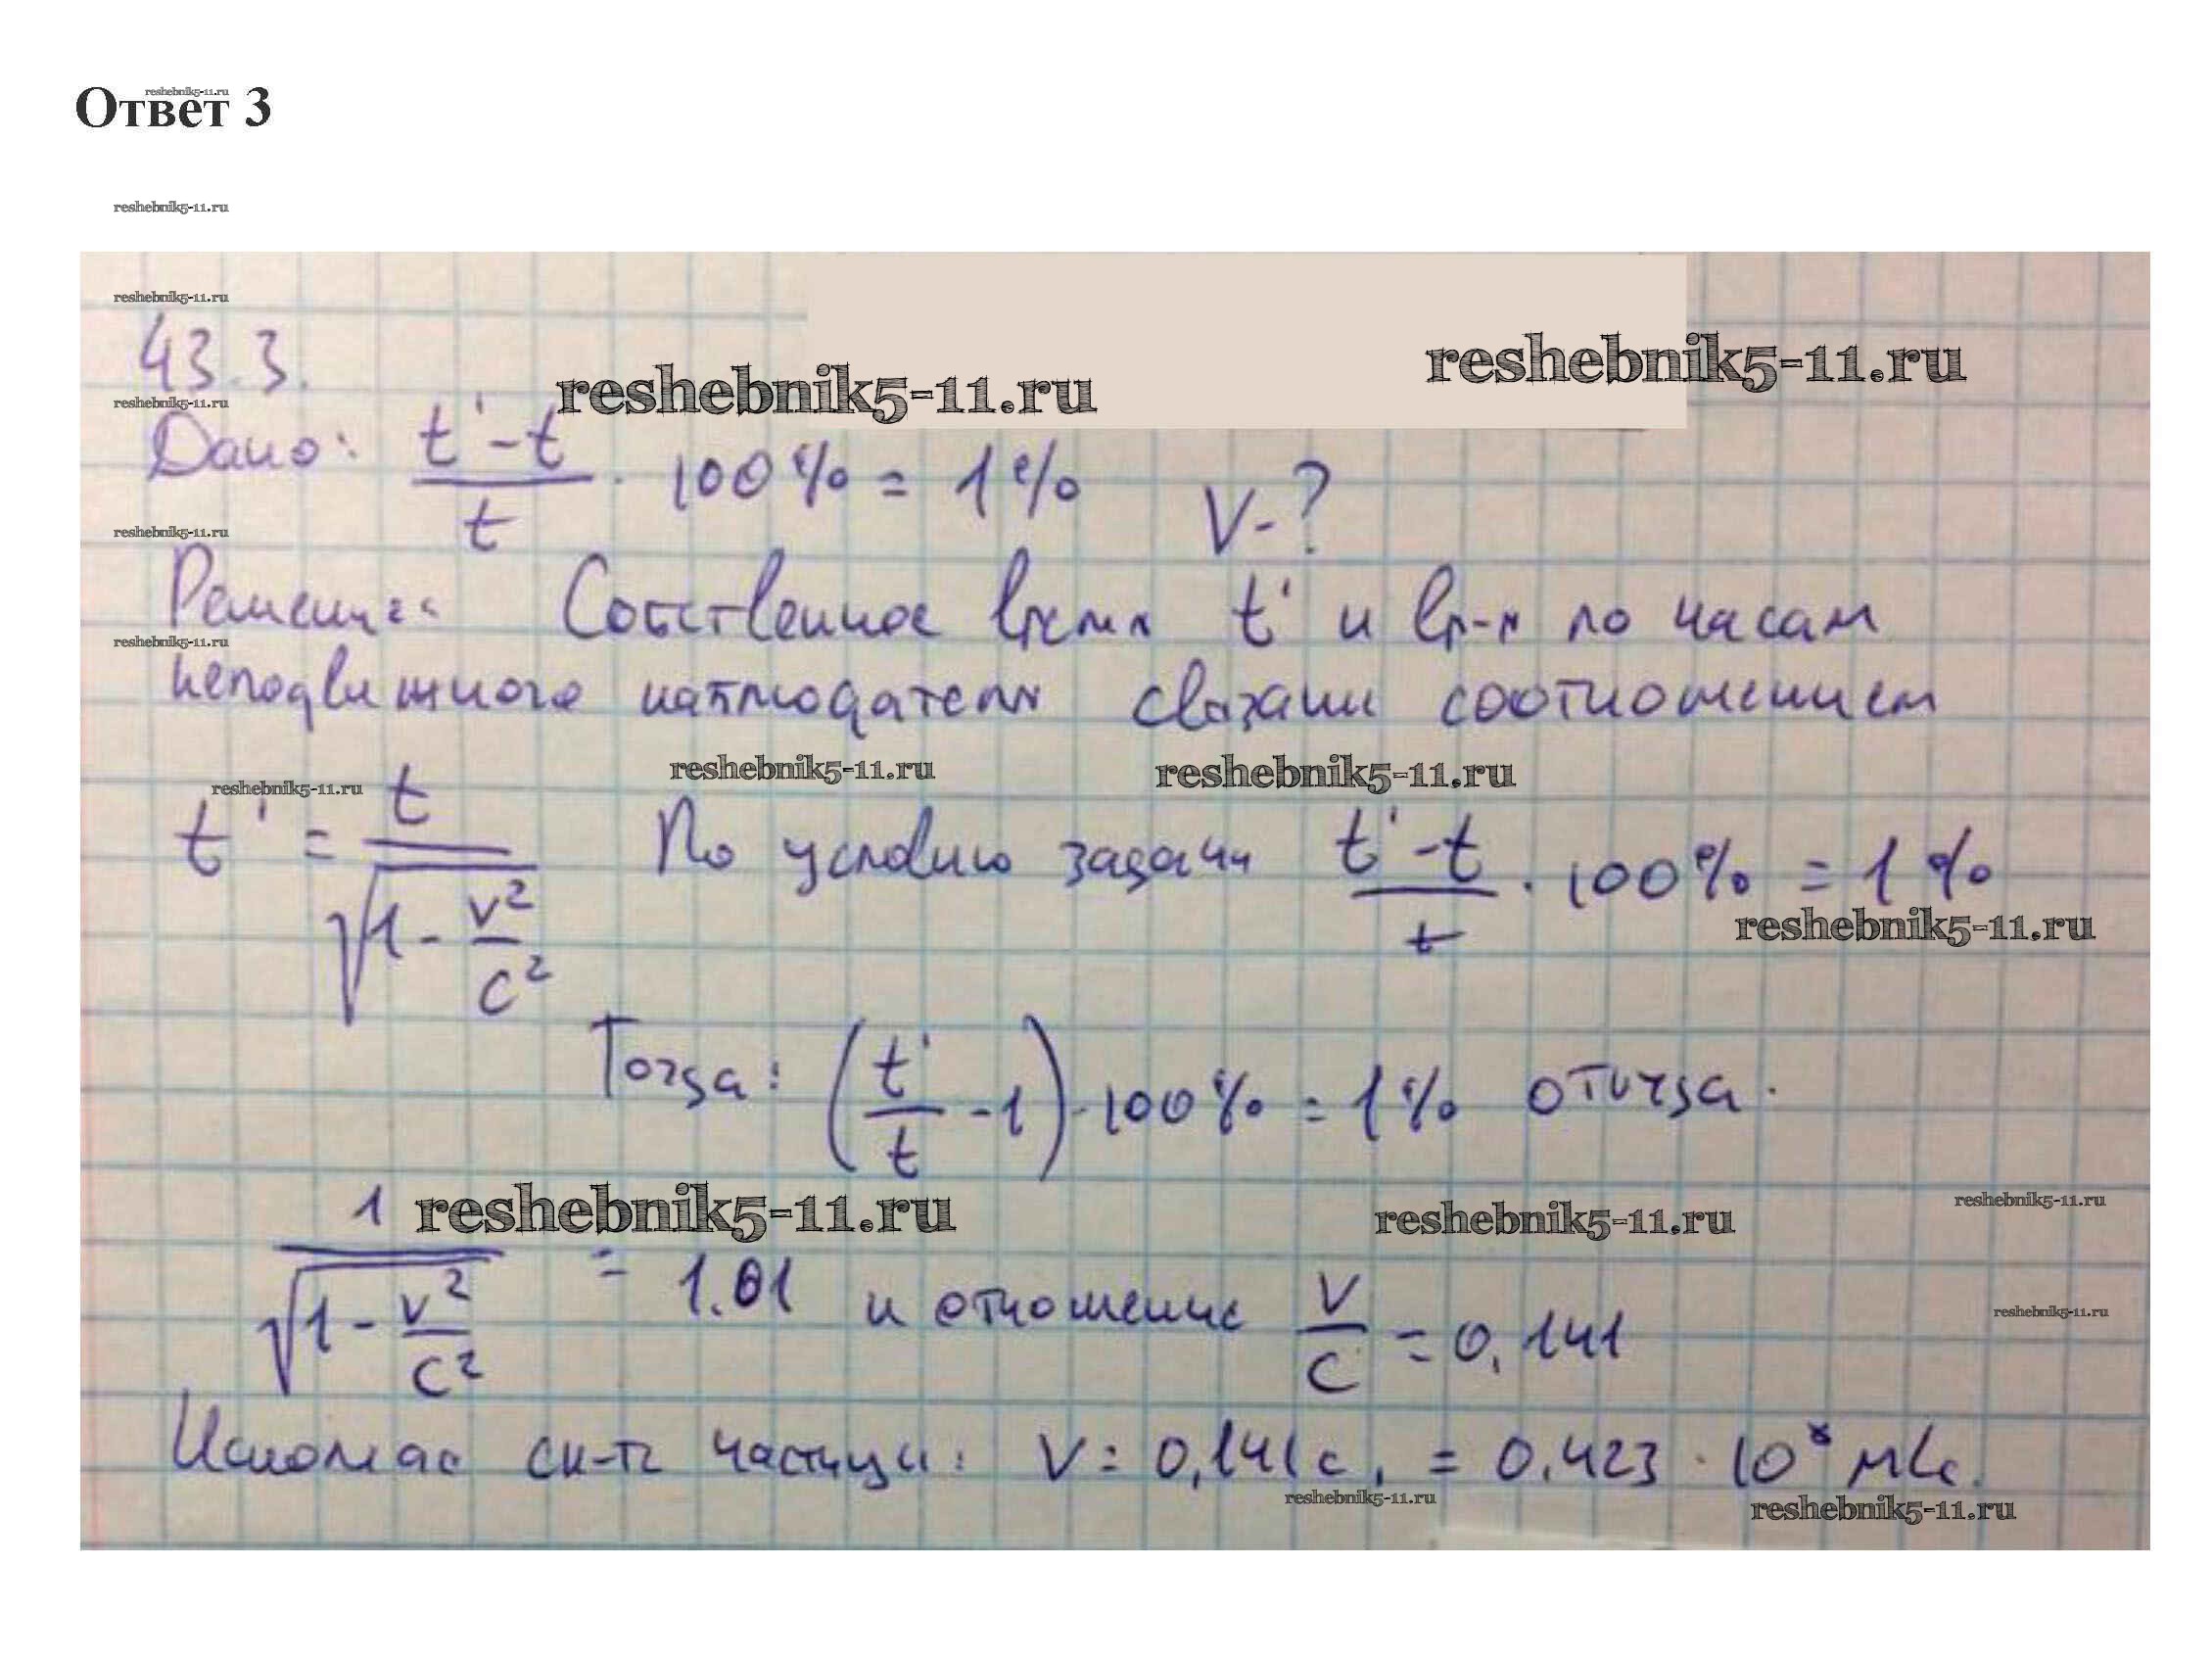 Ответ 3
reshebnik5-11.ru
reshebnik5-11.ru
reshebnik5-11.ru
43.3.
reshebnik5-11.ru
reshebnik5-11.ru
reshebnik5-11.ru
Дано: (t' - t)/t · 100% = 1% V-?
reshebnik5-11.ru
Решение Собственное время t' и вр-я по часам
reshebnik5-11.ru
неподвижного наблюдателя связаны соотношением
reshebnik5-11.ru
reshebnik5-11.ru
reshebnik5-11.ru
t' = t/√(1 - v²/c²) По условию задачи (t' - t)/t · 100% = 1%
reshebnik5-11.ru
Тогда: (t'/t - 1) · 100% = 1% откуда.
reshebnik5-11.ru
reshebnik5-11.ru
reshebnik5-11.ru
1/√(1 - v²/c²) = 1.01 и отношение v/c = 0,141
reshebnik5-11.ru
Искомая ск-ть частицы: V = 0,141c, = 0.423 · 10⁸ м/с.
reshebnik5-11.ru
reshebnik5-11.ru